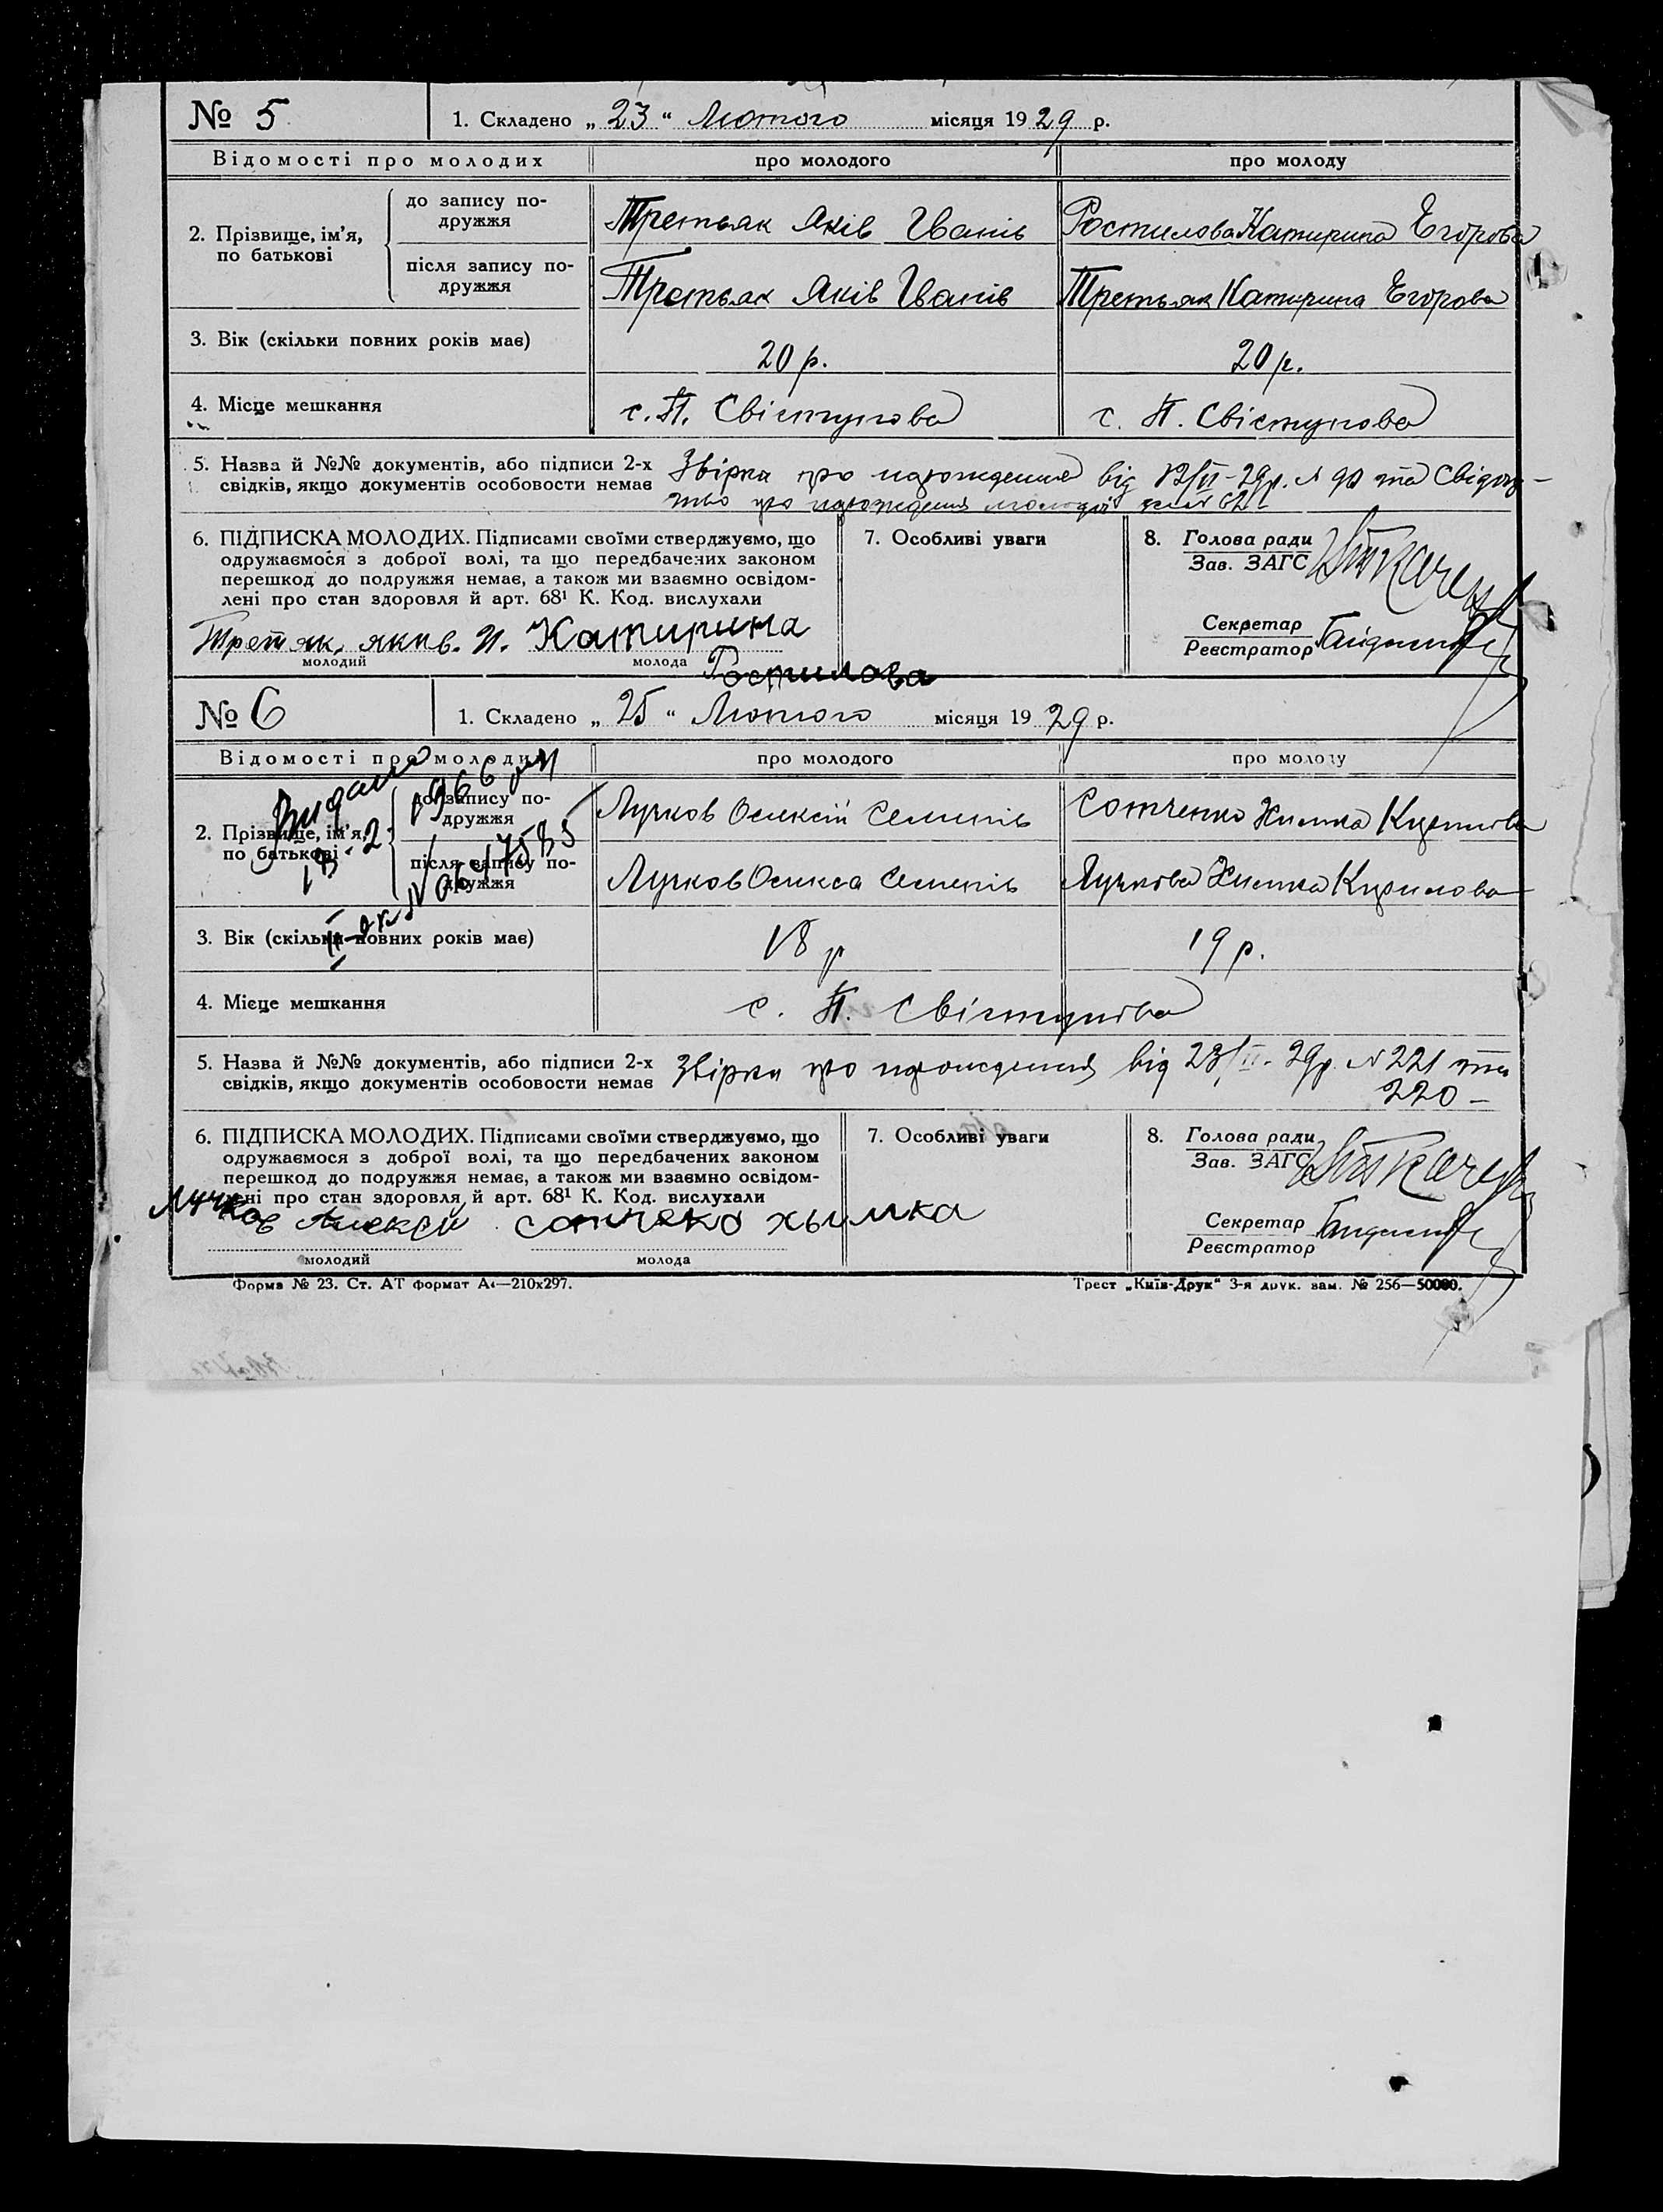 № 5
1. Складено „ 23 “ Лютого місяця 19 29 р.
Відомості про молодих
про молодого
про молоду
2. Прізвище, ім’я, по батькові
до запису по-
дружжя
Третьяк Яків Іванів
Ростилова Катирина Егорова
після запису по-
дружжя
Третьяк Яків Іванів
Третьяк Катирина Егорова
3. Вік (скільки повних років має)
20 р.
20 р.
4. Місце мешкання
с. П. Свістунова
с. П. Свістунова
5. Назва й №№ документів, або підписи 2-х
свідків, якщо документів особовости немає
Звірка про народження від 12/II-29р. № 90 та Свідоц-
тво про народження молодої
6. ПІДПИСКА МОЛОДИХ. Підписами своїми стверджуємо, що
одружаємося з доброї волі, та що передбачених законом
перешкод до подружжя немає, а також ми взаємно освідом-
лені про стан здоровля й арт. 68¹ К. Код. вислухали
Третяк. якив. И. Катирина
молодий
молода
Ростилова
7. Особливі уваги
8. Голова ради
Зав. ЗАГС
Секретар
Реєстратор
№ 6
1. Складено „ 25 “ Лютого місяця 19 29 р.
Відомості про молодих
про молодого
про молоду
Видано
18-2
1966
2. Прізвище, ім’я,
по батькові
до запису по-
дружжя
Лучков Олексій Семенів
Сотченко Химка Кирилова
після запису по-
дружжя
Лучков Олекса Семенів
Лучкова Химка Кирилова
3. Вік (скільки повних років має)
18 р
19 р.
4. Місце мешкання
с. П. Свістунова
5. Назва й №№ документів, або підписи 2-х
свідків, якщо документів особовости немає
Звірка про народження від 23/II-29р. № 221 та
220 –
6. ПІДПИСКА МОЛОДИХ. Підписами своїми стверджуємо, що
одружаємося з доброї волі, та що передбачених законом
перешкод до подружжя немає, а також ми взаємно освідом-
лені про стан здоровля й арт. 68¹ К. Код. вислухали
Лучков Алексй сотчеко хымка
молодий
молода
7. Особливі уваги
8. Голова ради
Зав. ЗАГС
Секретар
Реєстратор
Форма № 23. Ст. АТ формат А4—210х297.
Трест „Київ-Друк“ 3-я друк. зам. № 256—50000.